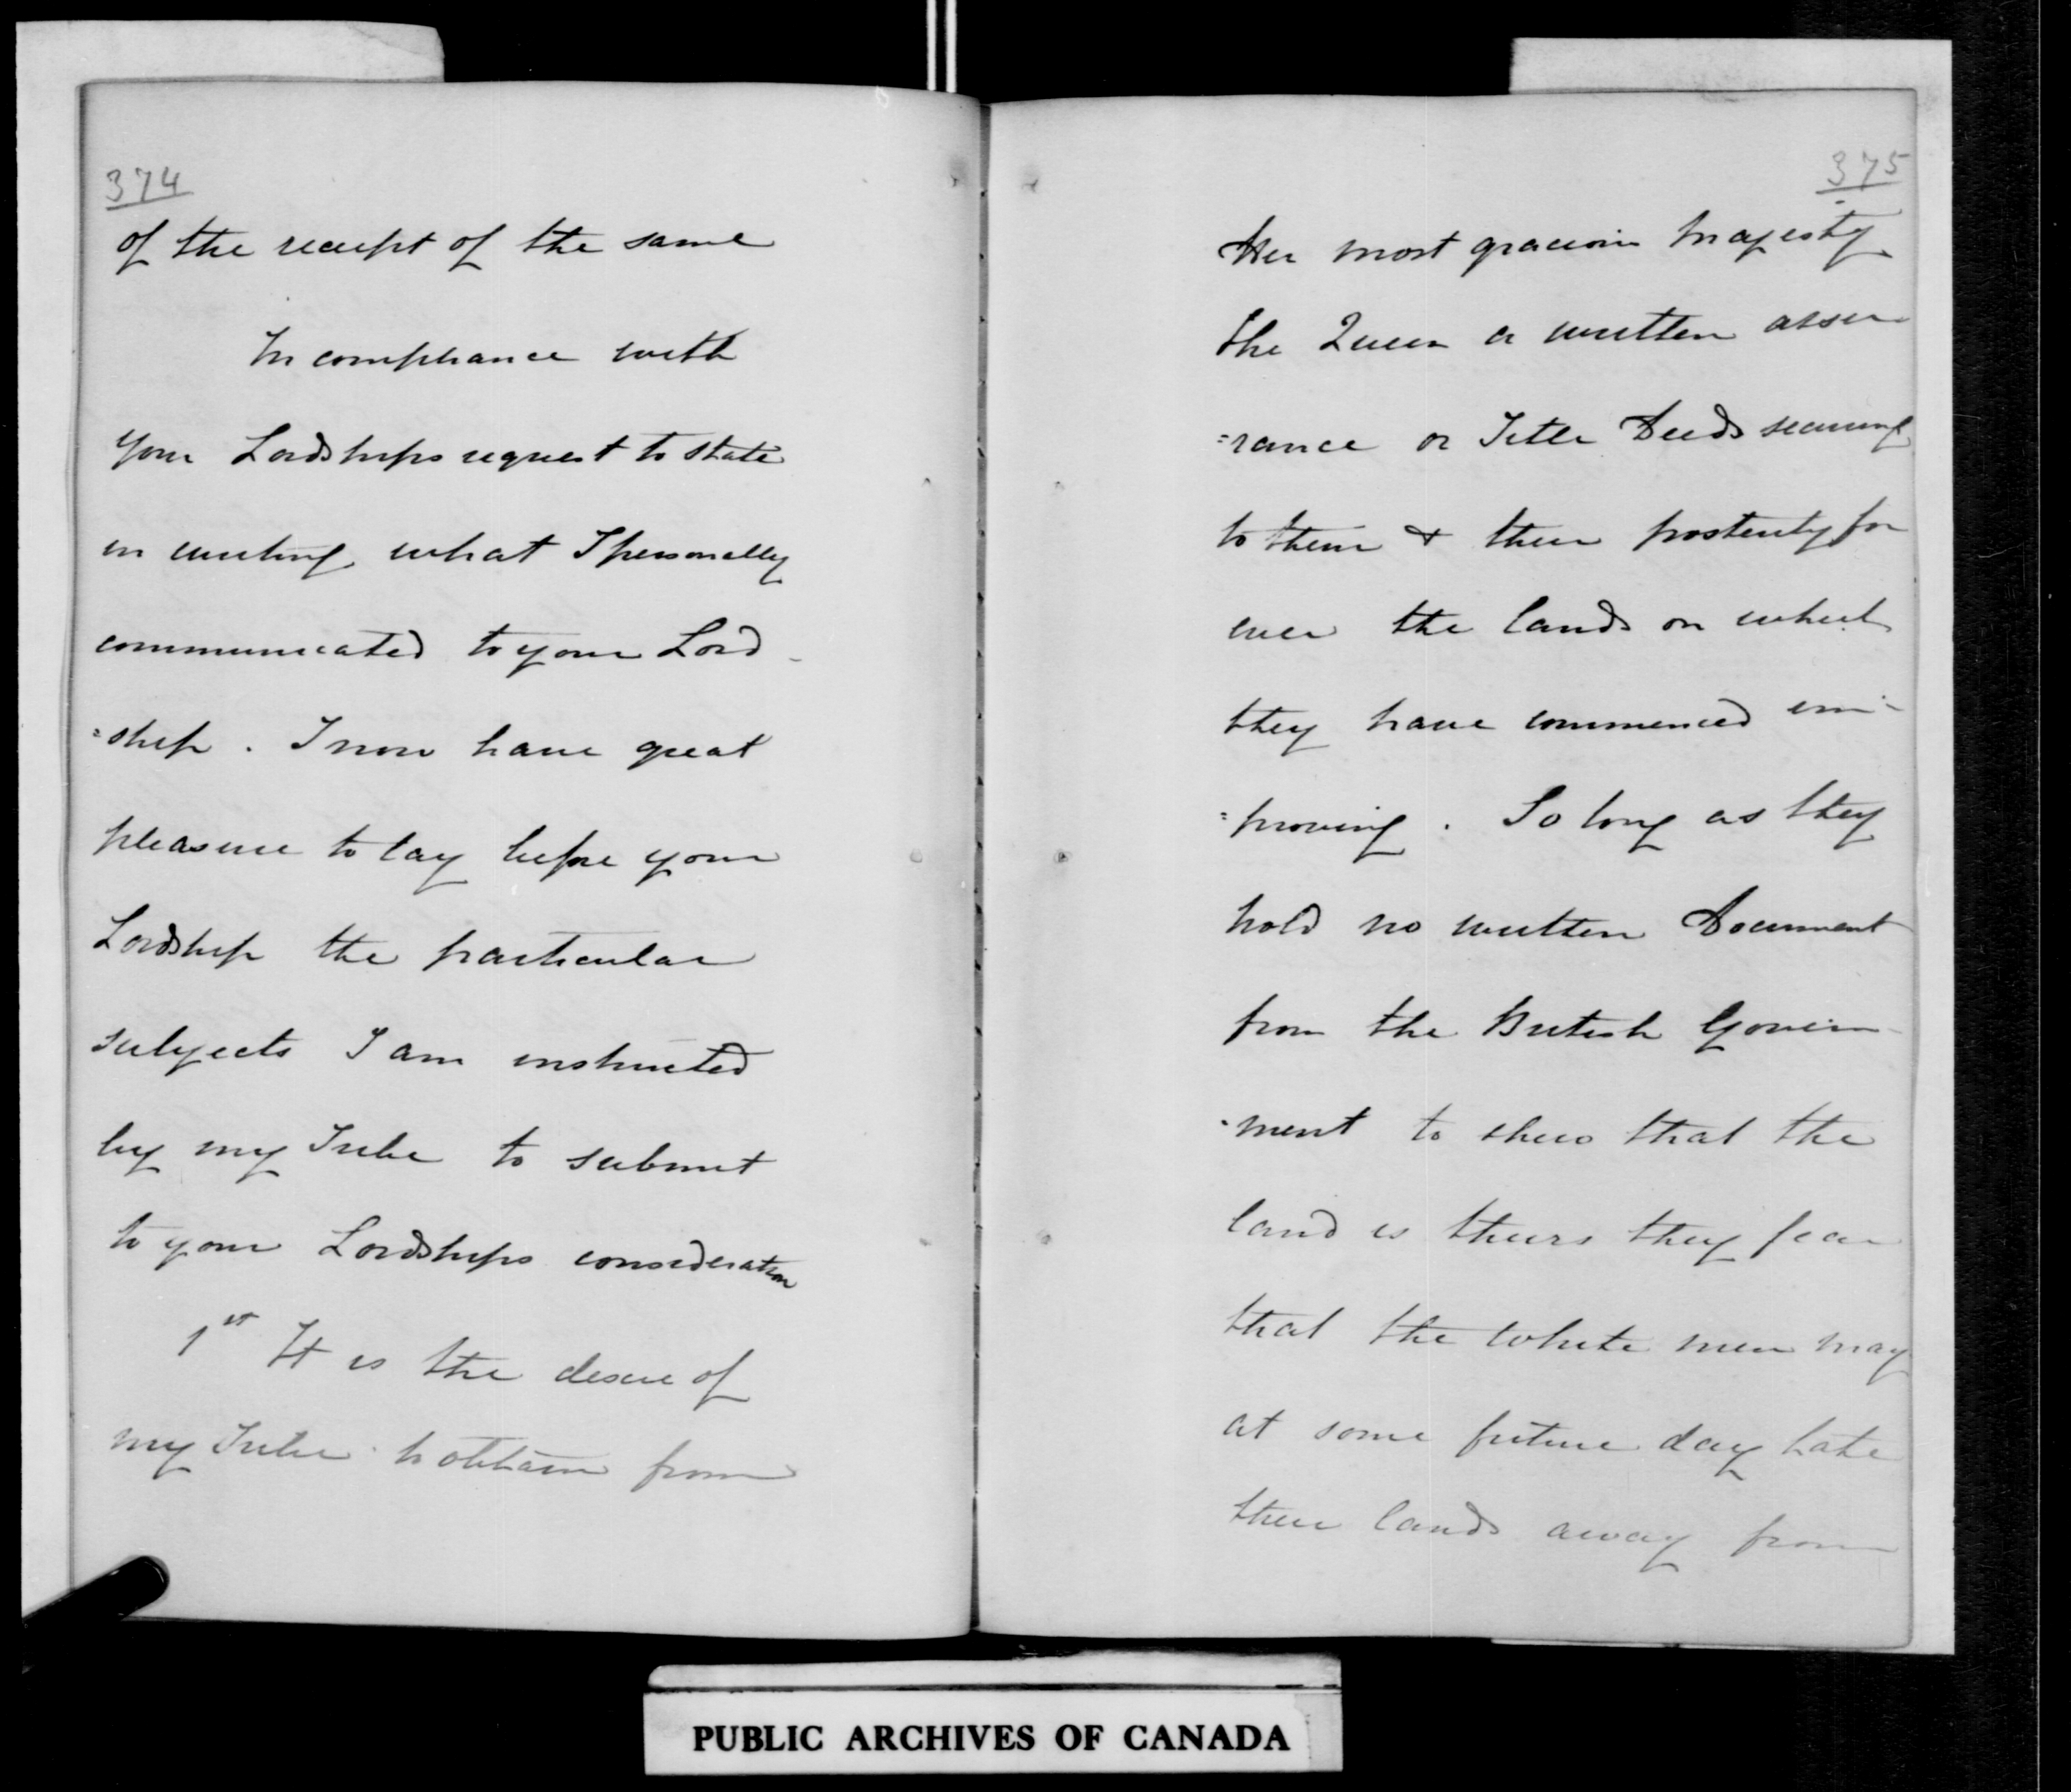 374
of the receipt of the same
In compliance with
your Lordships request to state
in writing what I personally
communicated to your Lord-
=ship. I now have great
pleasure to lay before your
Lordship the particular
subjects I am instructed
by my Tribe to submit
to your Lordships consideration
1st It is the desire of
my Tribe to obtain from
375
Her most gracious Majesty
the Queen a written assu
=rance or Title Deeds securing
to them & their posterity for
ever the lands on which
they have commenced im-
=proving. So long as they
hold no written Document
from the British Govern-
-ment to shew that the
land is theirs they fear
that the white men may
at some future day take
their lands away from
PUBLIC ARCHIVES OF CANADA